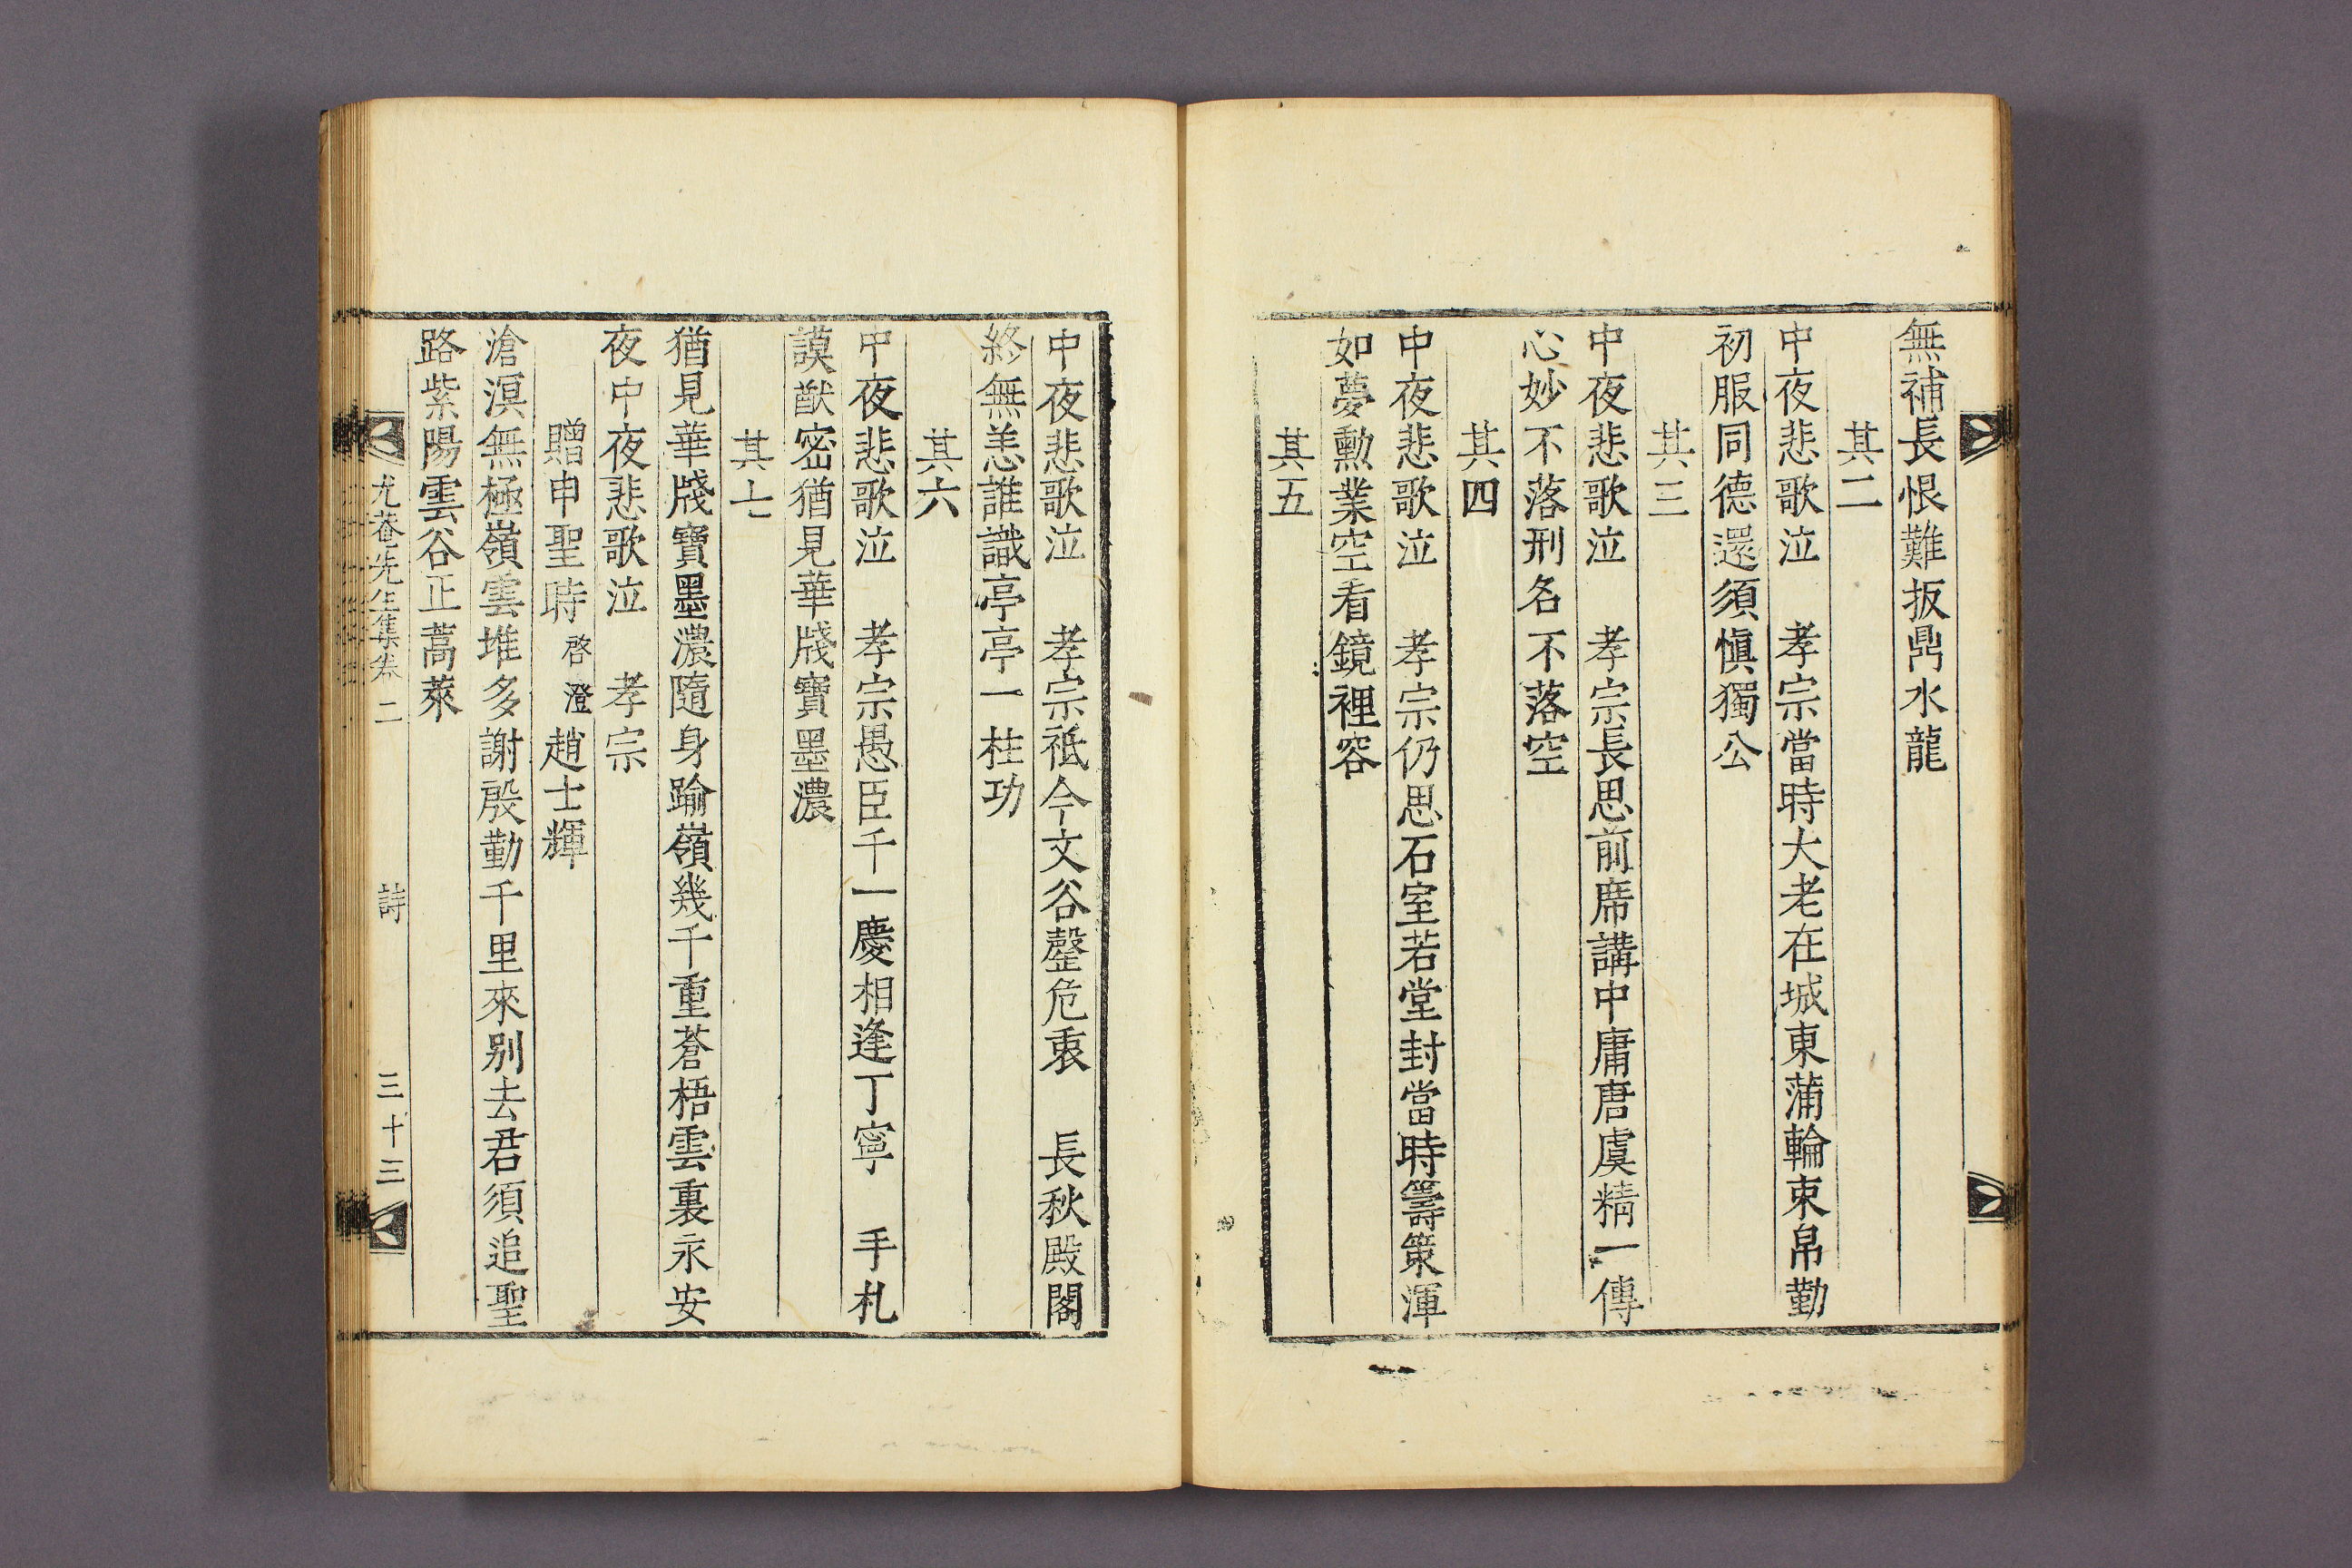 無補長恨難扳鼎水龍
其二
中夜悲歌泣 孝宗當時大老在城東蒲輪束帛勤
初服同德還須愼獨公
其三
中夜悲歌泣 孝宗長思前席講中庸唐虞精一傳
心妙不落刑名不落空
其四
中夜悲歌泣 孝宗仍思石室若堂封當時籌策渾
如夢勳業空看鏡裡容
其五
中夜悲歌泣 孝宗祗今文谷罄危衷 長秋殿閣
終無恙誰識亭亭一柱功
其六
中夜悲歌泣 孝宗愚臣千一慶相逢丁寧 手札
謨猷密猶見華牋寶墨濃
其七
猶見華牋寶墨濃隨身踰嶺幾千重蒼梧雲裏永安
夜中夜悲歌泣 孝宗
贈申聖時啓澄趙士輝
滄溟無極嶺雲堆多謝殷勤千里來別去君須追聖
路紫陽雲谷正蒿萊
尤菴先生集卷二 詩 三十三